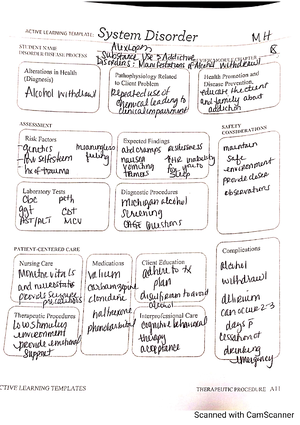 ACTIVE LEARNING TEMPLATE: System Disorder
MH
STUDENT NAME
DISORDER/DISEASE PROCESS Substance Use & Addictive
Disorders: Manifestations of Alcohol Withdrawal
REVIEW MODULE CHAPTER
Alterations in Health
(Diagnosis)
Alcohol withdrawal
Pathophysiology Related
to Client Problem
Repeated use of
chemical leading to
clinical impairment
Health Promotion and
Disease Prevention
educate the client
and family about
addiction
ASSESSMENT
SAFETY
CONSIDERATIONS
Risk Factors
genetics
meaningless
feeling
low self esteem
hx of trauma
Expected Findings
Abd cramps restlessness
nausea
vomiting
tremors
↑HR inability
to
sleep
maintain
safe
environment
provide close
observations
Laboratory Tests
CBC peth
ggt CDT
AST/ALT MCV
Diagnostic Procedures
michigan alcohol
screening
CAGE Questions
PATIENT-CENTERED CARE
Complications
Nursing Care
Monitor vitals
and neurostatus
provide seizure
precautions
Medications
valium
carbamazepine
clonidine
naltrexone
phenobarbital
Client Education
adhere to tx
plan
disulfiram to avoid
alcohol
alcohol
withdrawl
delirium
can occur 2-3
days p
cessation of
drinking
emergency
Therapeutic Procedures
low stimuling
environment
provide emotional
support
Interprofessional Care
cognitive behavioral
therapy
acceptance
ACTIVE LEARNING TEMPLATES
THERAPEUTIC PROCEDURE A11
Scanned with CamScanner